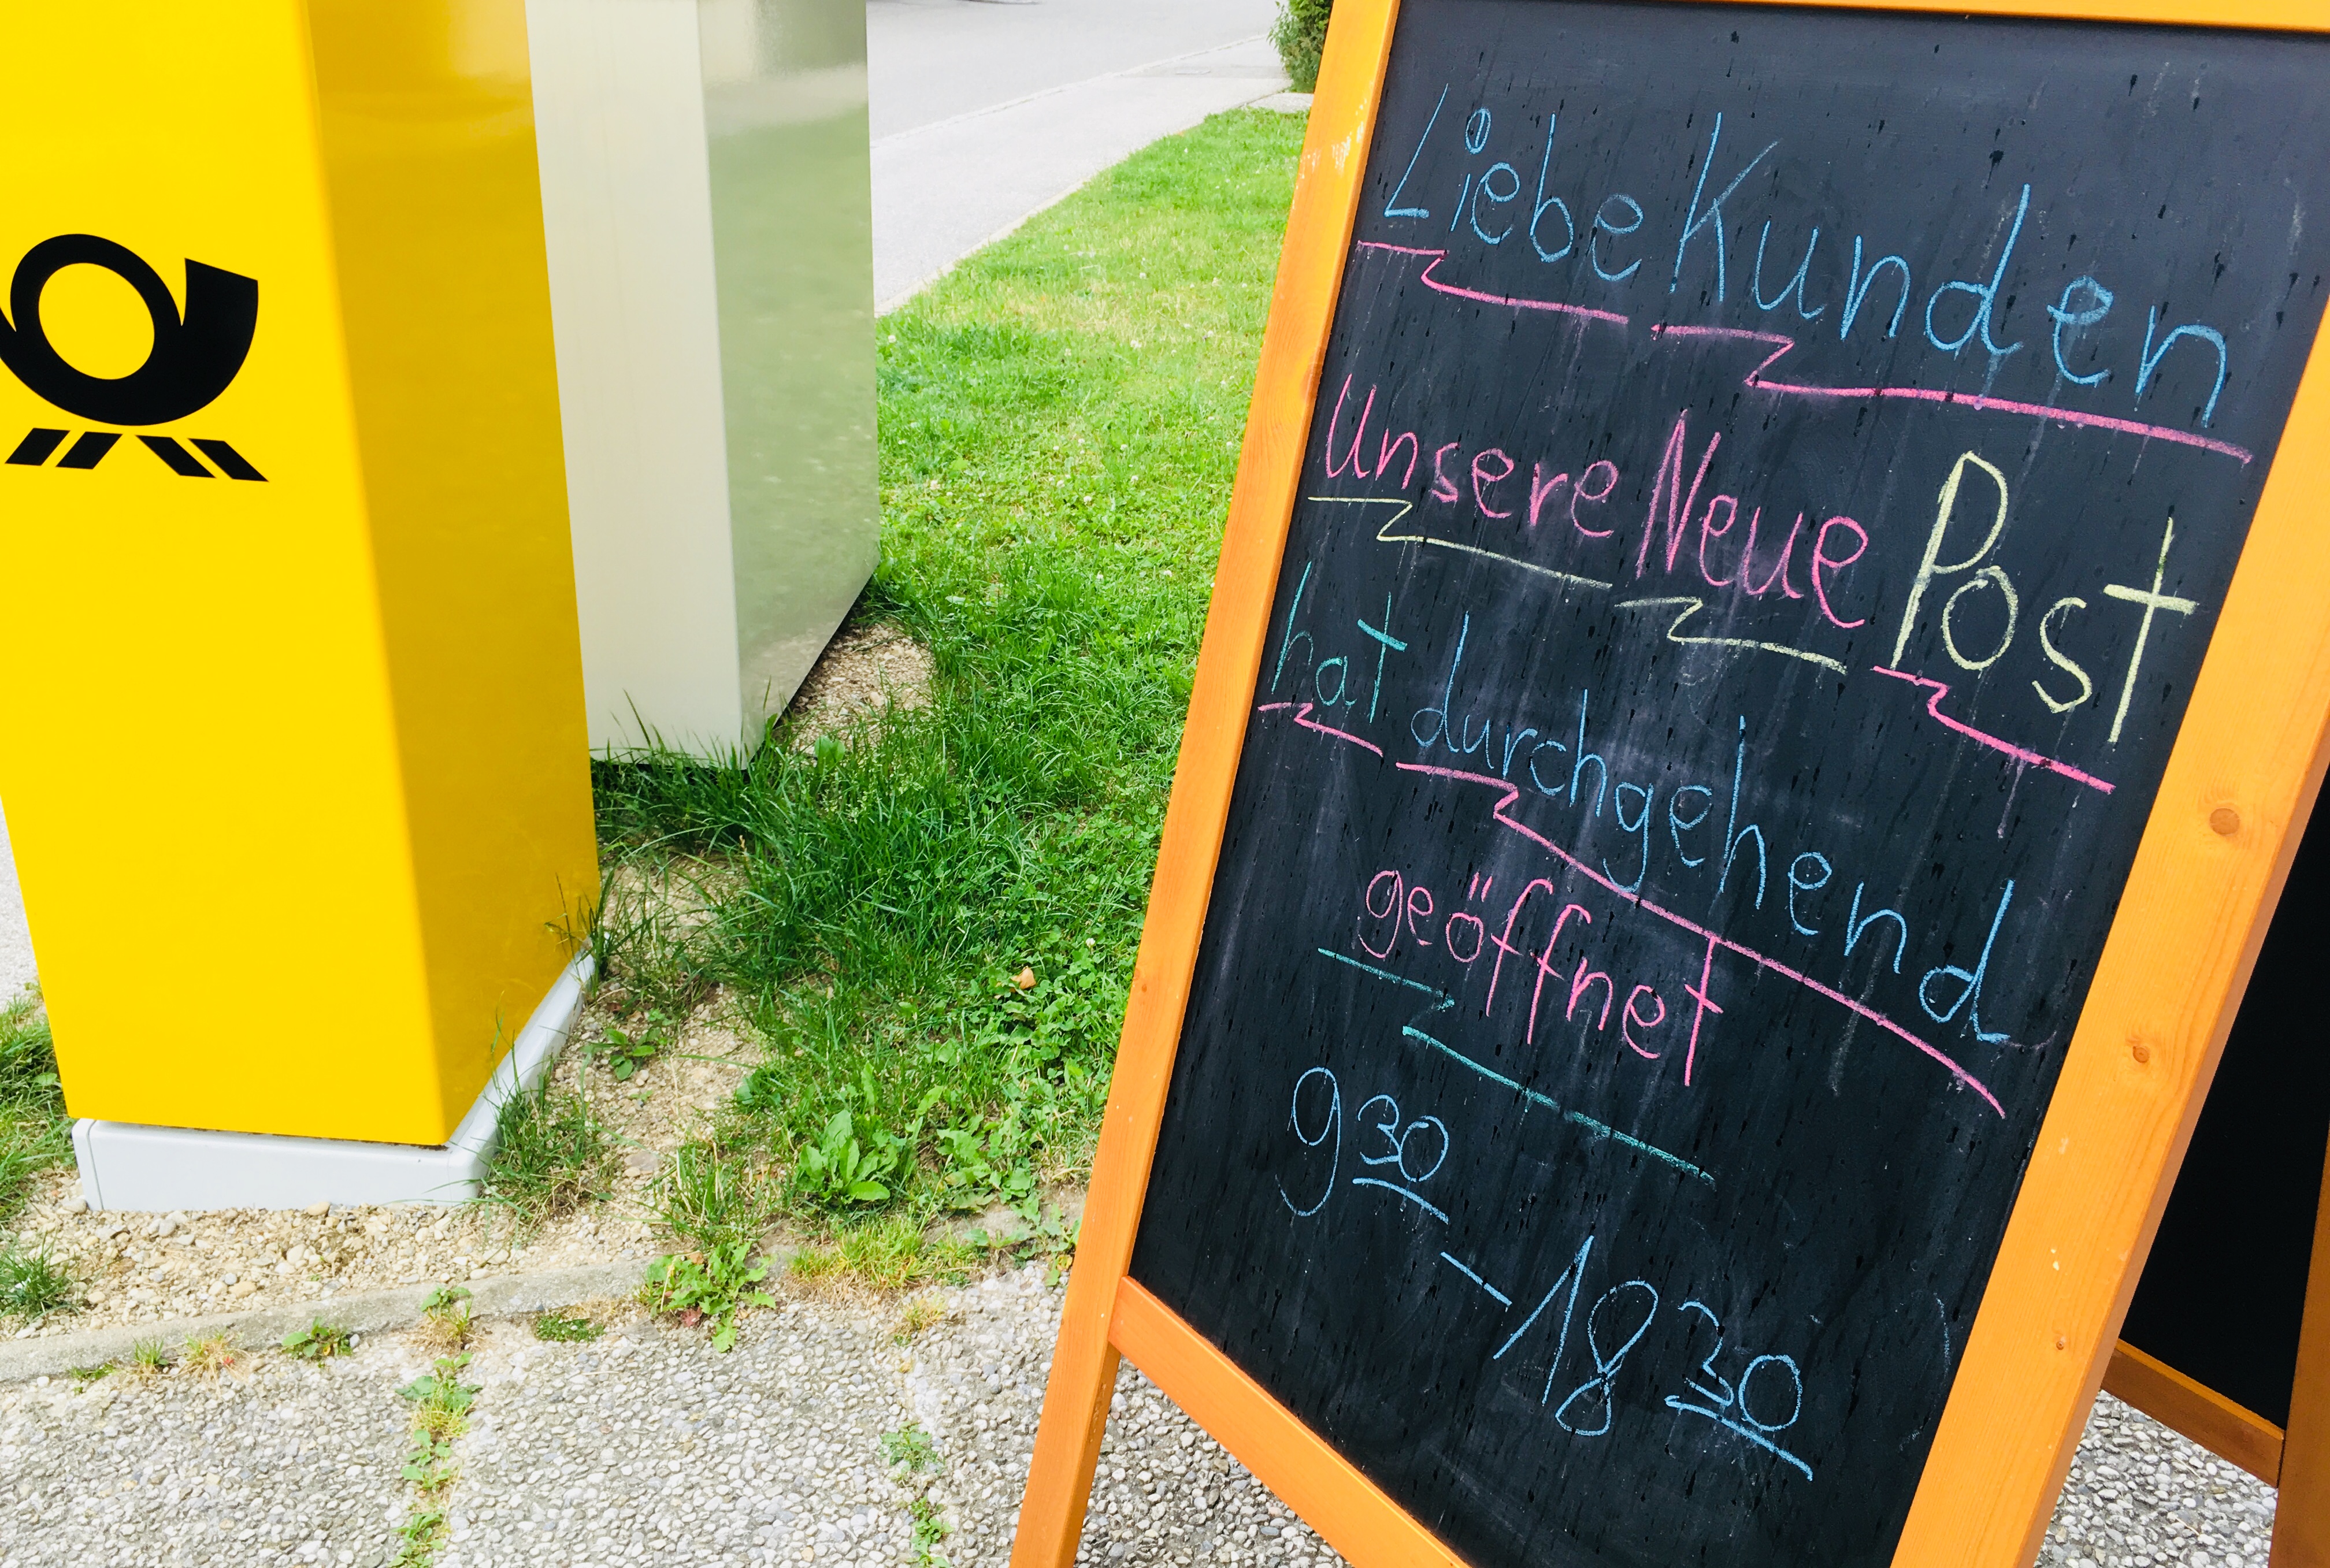 Liebe Kunden
Unsere Neue Post
hat durchgehend
geöffnet
9 30
- 18 30